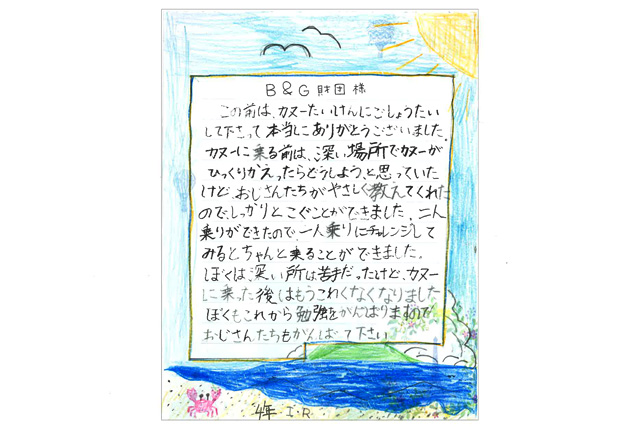 B&G 財団 様
この前は、カヌーたいけんにごしょうたい
して下さって本当にありがとうございました。
カヌーに乗る前は、深い場所でカヌーが
ひっくりかえったらどうしよう、と思っていた
けど、おじさんたちがやさしく教えてくれた
ので、しっかりとこぐことができました。二人
乗りができたので、一人乗りにチャレンジして
みるとちゃんと乗ることができました。
ぼくは、深い所は苦手だったけど、カヌー
に乗った後はもうこわくなくなりました
ぼくもこれから勉強をがんばりますので
おじさんたちもがんばって下さい
4年 I.R